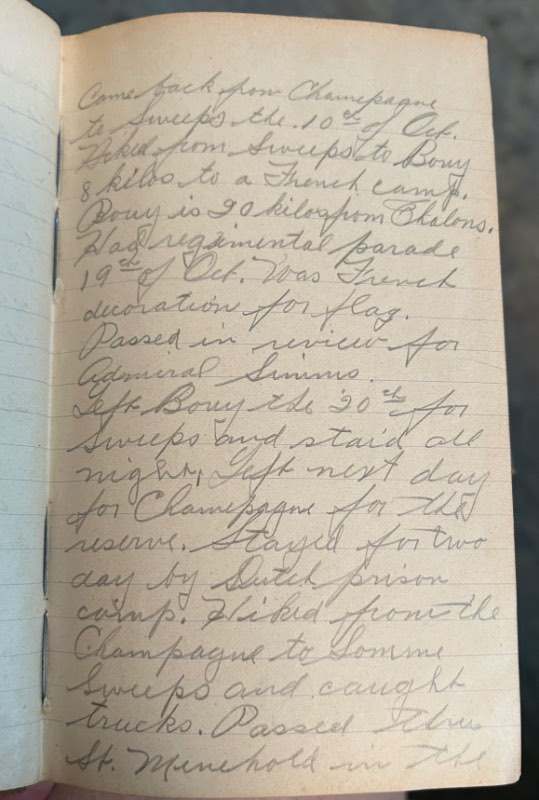 Came back from Champagne
to Sweeps the 10th of Oct.
Hiked from Sweeps to Bouy
8 kilos to a French camp.
Bouy is 20 kilos from Chalons.
Had regimental parade
19th of Oct. Was French
decoration for flag.
Passed in review for
Admiral Simms.
Left Bouy the 20th for
Sweeps and staid all
night, Left next day
for Champagne for the
reserve. Stayed for two
day by Dutch prison
camp. Hiked from the
Champagne to Somme
Sweeps and caught
trucks. Passed thru
St. Minehold in the